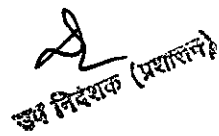 उप निदेशक (प्रशासन)